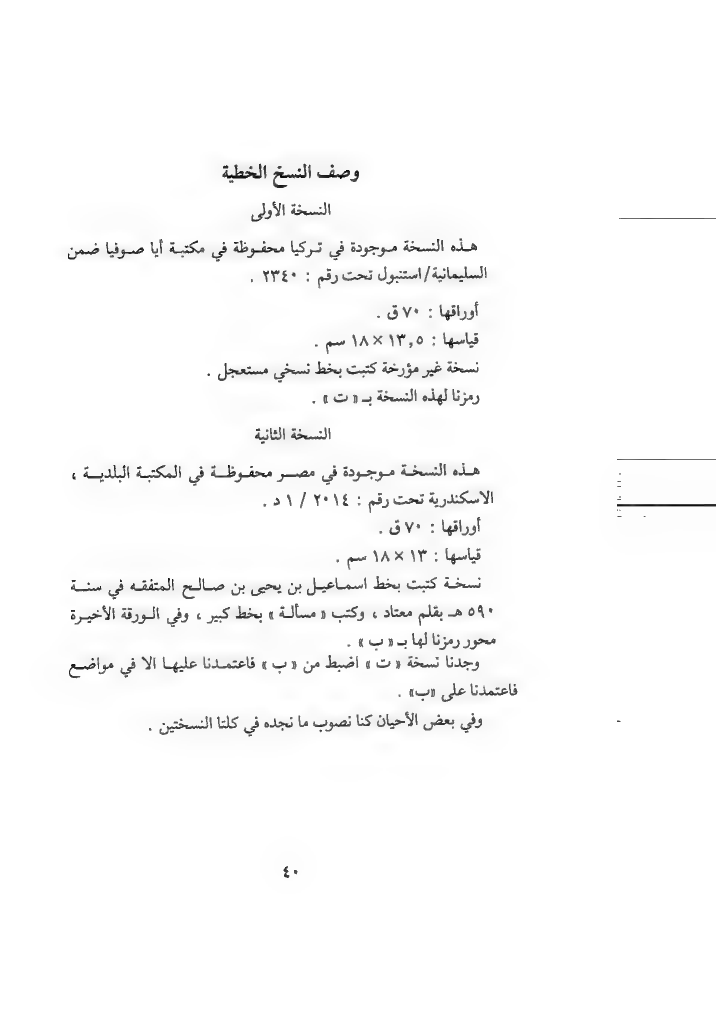 وصف النسخ الخطية
النسخة الأولى
هـذه النسخة مـوجودة في تـركيا محفـوظة في مكتبـة أيا صـوفيا ضمن
السليمانية/استنبول تحت رقم : ٢٣٤٠ .
أوراقها : ٧٠ ق .
قياسها : ١٣,٥ × ١٨ سم .
نسخة غير مؤرخة كتبت بخط نسخي مستعجل .
رمزنا لهذه النسخة بـ « ت » .
النسخة الثانية
هـذه النسخـة مـوجـودة في مصـر محفـوظـة في المكتبـة البلديـة ،
الاسكندرية تحت رقم : ٢٠١٤ / ١ د .
أوراقها : ٧٠ ق .
قياسها : ١٣ × ١٨ سم .
نسخـة كتبت بخط اسمـاعيـل بن يحيى بن صـالـح المتفقـه في سنـة
٥٩٠ هـ بقلم معتاد ، وكتب « مسألـة » بخط كبير ، وفي الـورقة الأخيـرة
محور رمزنا لها بـ « ب » .
وجدنا نسخة « ت » اضبط من « ب » فاعتمـدنا عليهـا الا في مواضـع
فاعتمدنا على «ب» .
وفي بعض الأحيان كنا نصوب ما نجده في كلتا النسختين .
٤٠